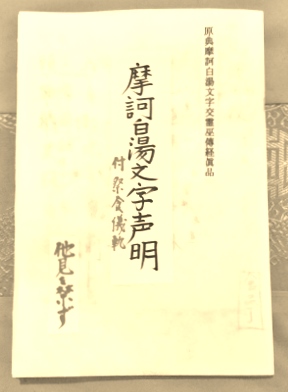 原典摩訶白湯文字交霊巫傳経眞品
摩訶白湯文字声明
付祭食儀軌
他見ヲ禁ず